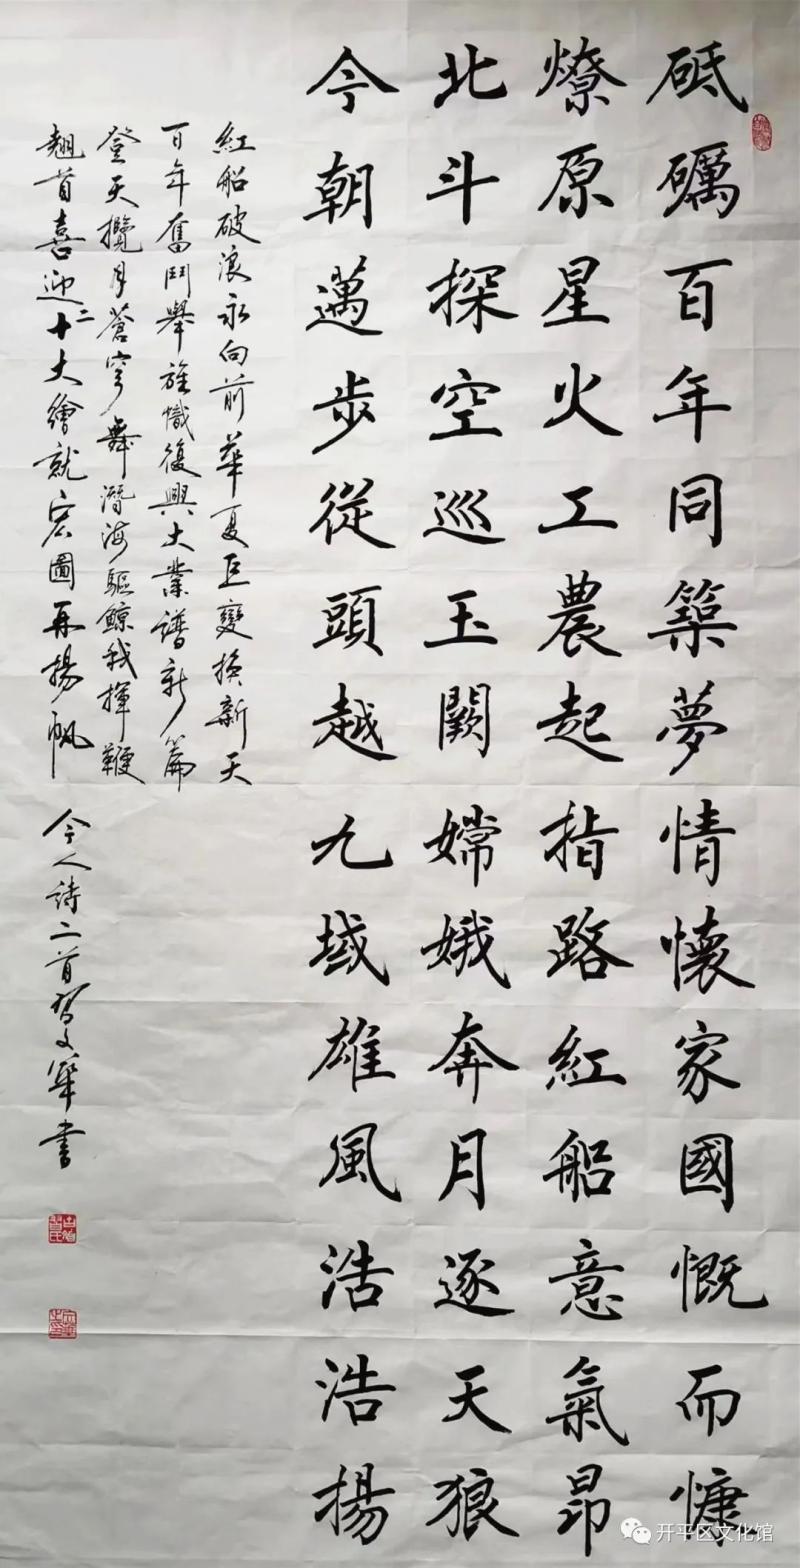 砥礪百年同築夢情懷家國慨而慷
燎原星火工農起指路紅船意氣昂
北斗探空巡玉闕嫦娥奔月逐天狼
今朝邁步從頭越九域雄風浩浩揚
紅船破浪永向前華夏巨變換新天
百年奮鬥舉旌幟復興大業譜新篇
登天攬月蒼穹舞潛海驅鯨我揮鞭
翹首喜迎二十大繪就宏圖再揚帆
今人詩二首賀文寧書
开平区文化馆